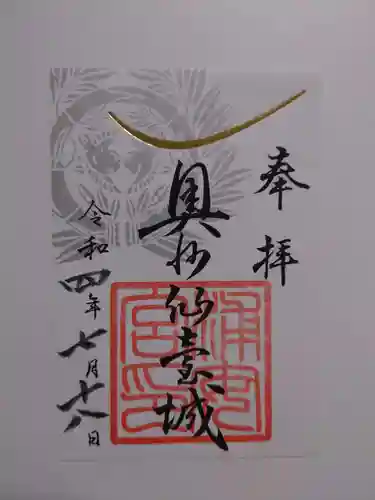 奉拝
奥州仙臺城
令和四年七月十八日